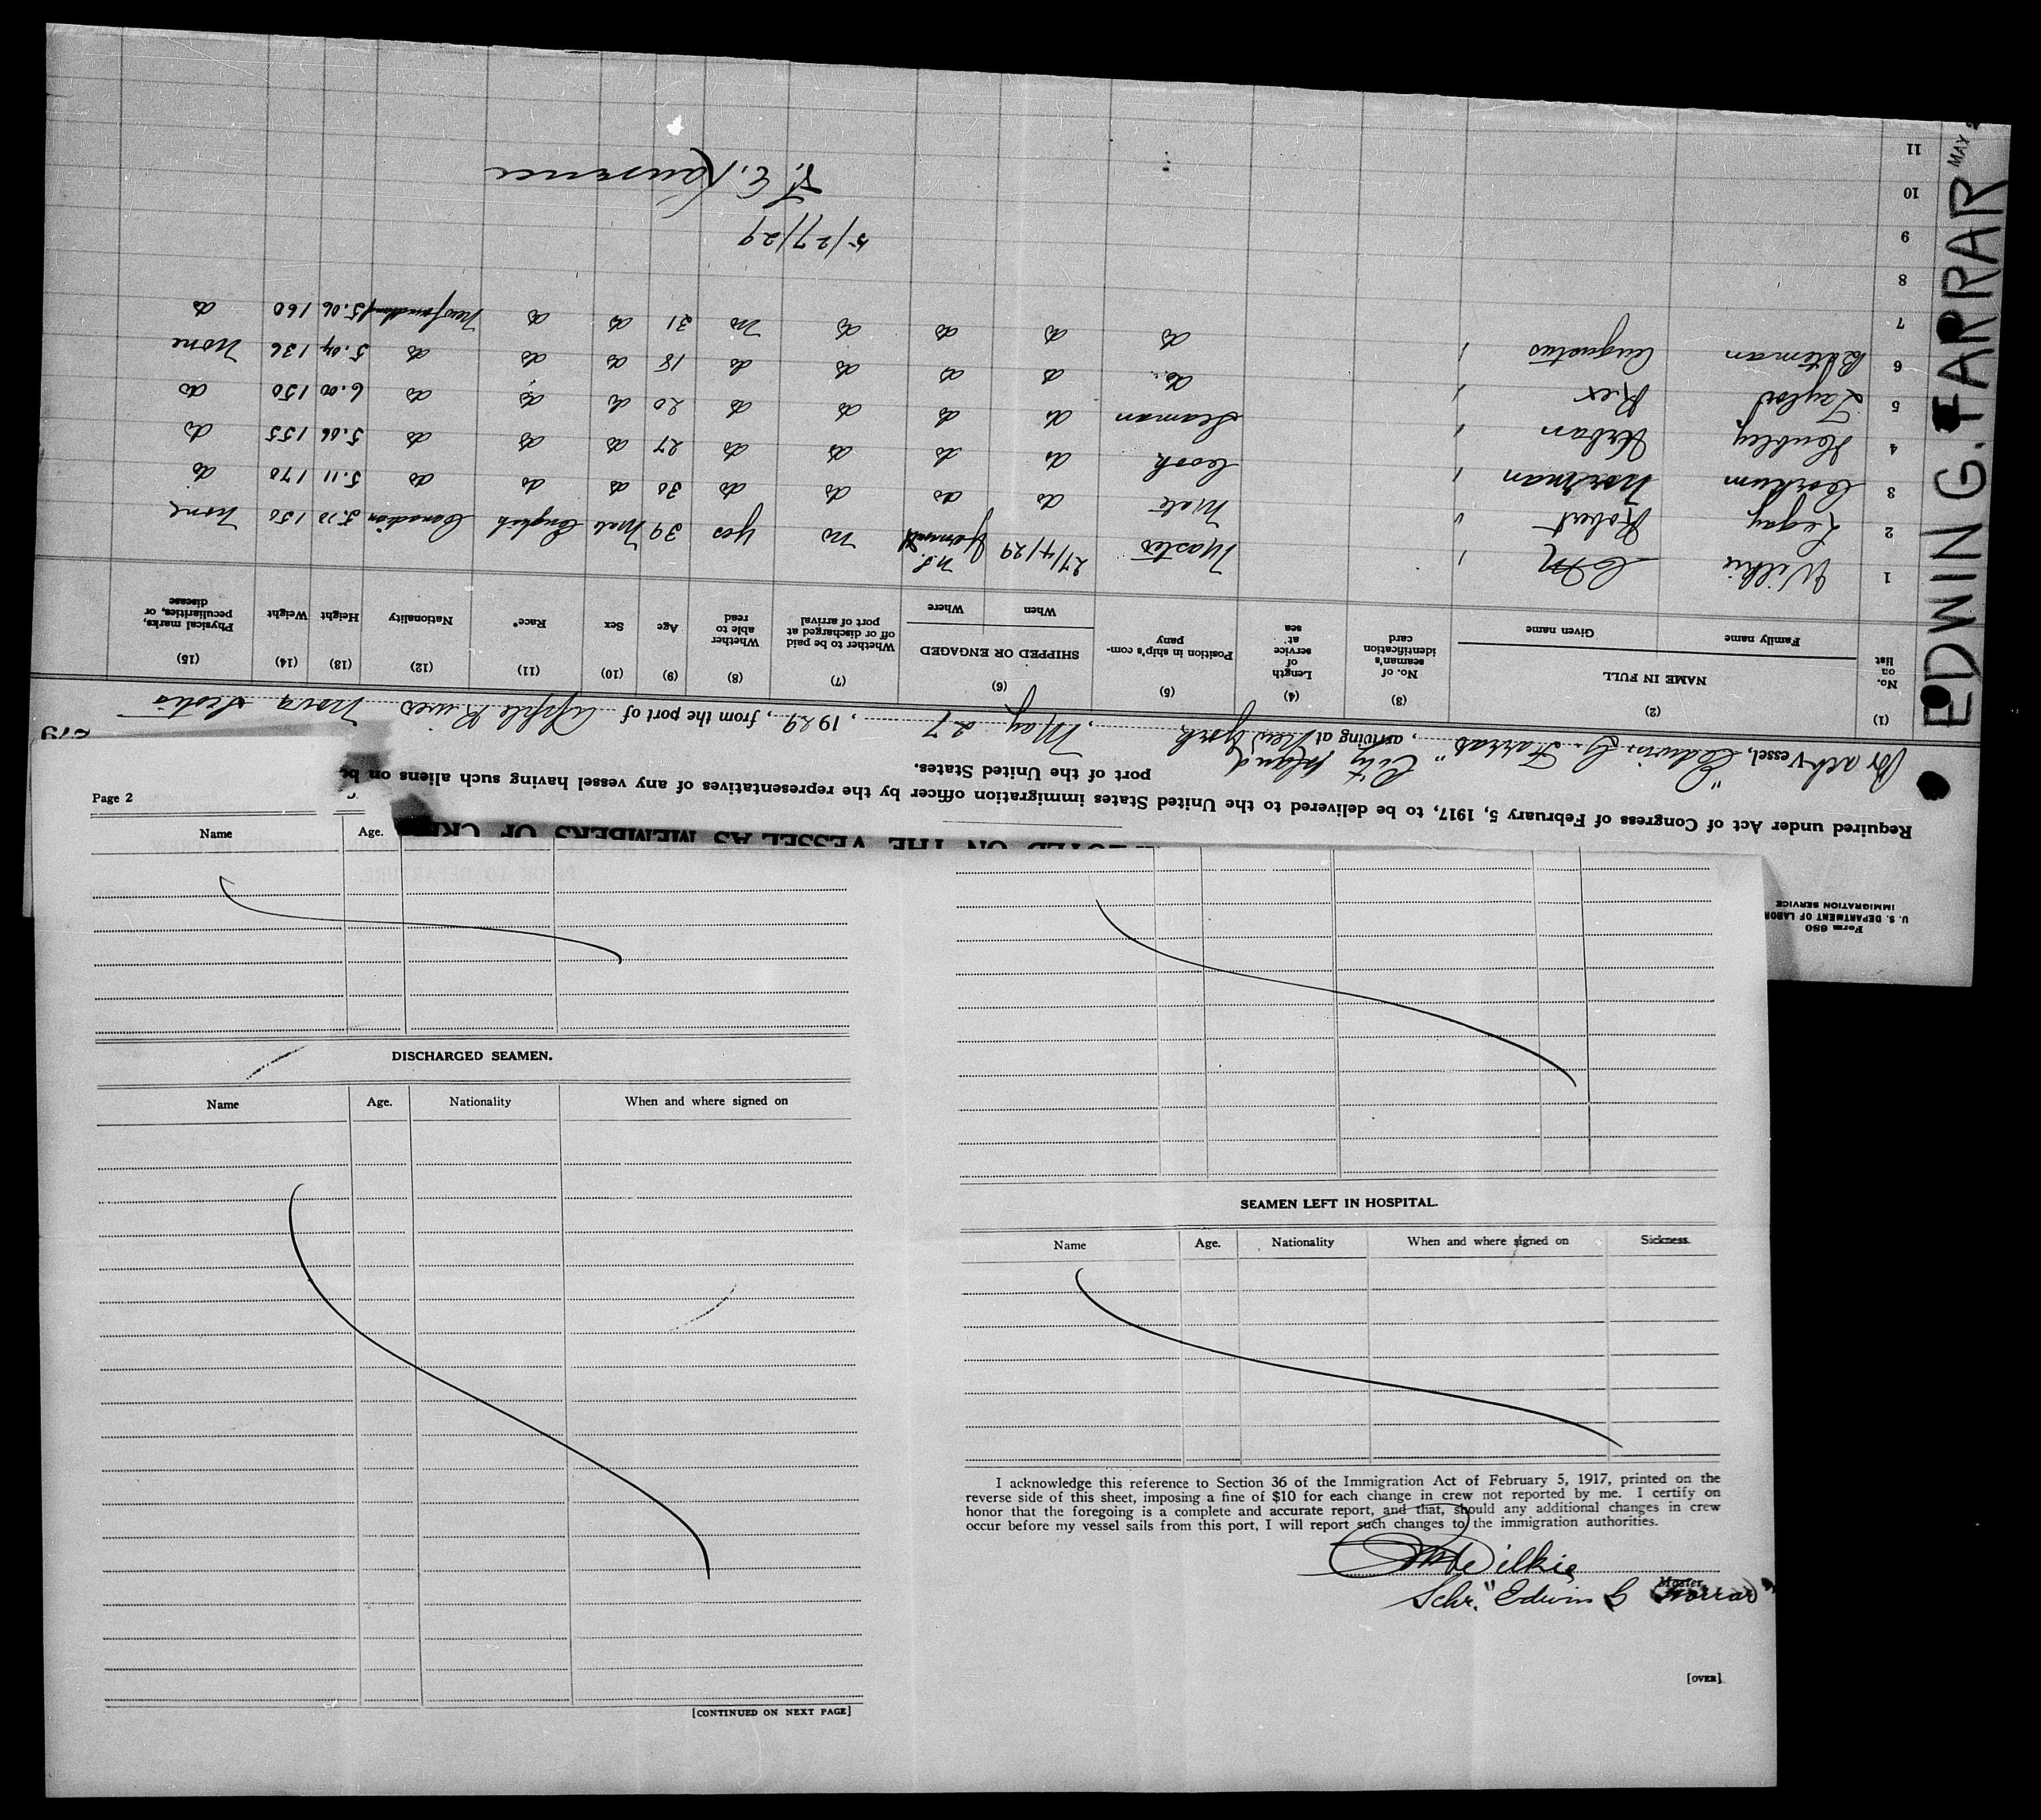 Form 680
U. S. DEPARTMENT OF LABOR
IMMIGRATION SERVICE
EDWIN G. FARRAR
MAY 2
Required under Act of Congress of February 5, 1917, to be delivered to the United States immigration officer by the representatives of any vessel having such aliens on b
port of the United States.
Vessel, "Edwin G. Farrar", arriving at City Island New York, May 27, 1929, from the port of Apple River Nova Scotia
279
(1) (2) (3) (4) (5) (6) (7) (8) (9) (10) (11) (12) (13) (14) (15)
No. on list NAME IN FULL Family name Given name No. of seaman's identification card Length of service at sea Position in ship's company SHIPPED OR ENGAGED When Where Whether to be paid off or discharged at port of arrival Whether able to read Age Sex Race* Nationality Height Weight Physical marks, peculiarities, or disease
1 Wilkie C M Master 27/4/29 N.S. no yes 39 Male English Canadian 5.10 150 None
2 Legay Robert Mate do do do do 30 do do do 5.11 170 do
3 Corkum Norman Cook do do do do 27 do do do 5.06 155 do
4 Urban Seaman do do do do 20 do do do 6.00 150 do
5 Taylor Rex do do do do do 18 do do do 5.04 136 None
6 Bateman Augustus do do do do no 21 do do Newfoundland 5.06 160 do
7
8
9
10
11
5/27/29
Page 2
Name Age.
DISCHARGED SEAMEN.
Name Age. Nationality When and where signed on
[CONTINUED ON NEXT PAGE]
SEAMEN LEFT IN HOSPITAL.
Name Age. Nationality When and where signed on Sickness.
I acknowledge this reference to Section 36 of the Immigration Act of February 5, 1917, printed on the
reverse side of this sheet, imposing a fine of $10 for each change in crew not reported by me. I certify on
honor that the foregoing is a complete and accurate report, and that, should any additional changes in crew
occur before my vessel sails from this port, I will report such changes to the immigration authorities.
CM Wilkie
Master,
Schr. "Edwin G Farrar"
[OVER]